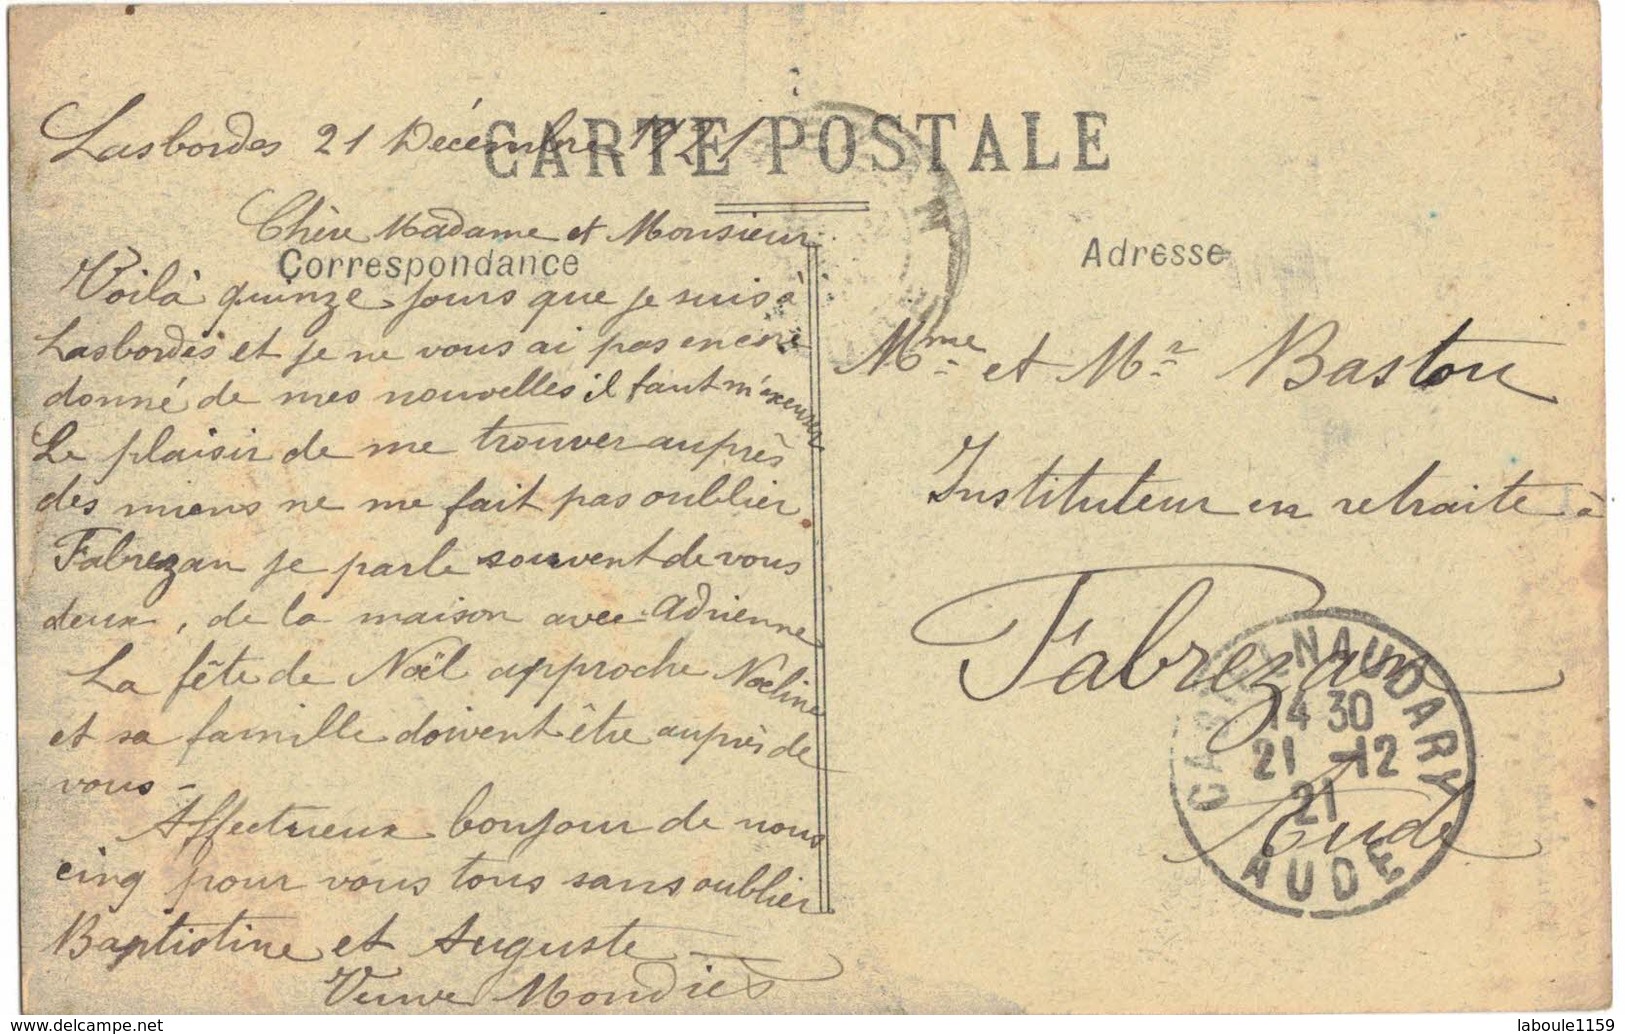 CARTE POSTALE
Lasbordes 21 Décembre 1921
Chère Madame et Monsieur
Correspondance
Voilà quinze jours que je suis à
Lasbordes et je ne vous ai pas encore
donné de mes nouvelles il faut m'excuser
Le plaisir de me trouver auprès
des miens ne me fait pas oublier
Fabrezan je parle souvent de vous
deux, de la maison avec Adrienne
La fête de Noël approche Noéline
et sa famille doivent être auprès de
vous -
Affectueux bonjour de nous
cinq pour vous tous sans oublier
Baptistine et Auguste
Veuve Mondiés
Adresse
Mme et Mr Bastou
Instituteur en retraite à
Fabrezan
Aude
CASTELNAUDARY
14 30
21 -12
21
AUDE
www.delcampe.net
laboule1159